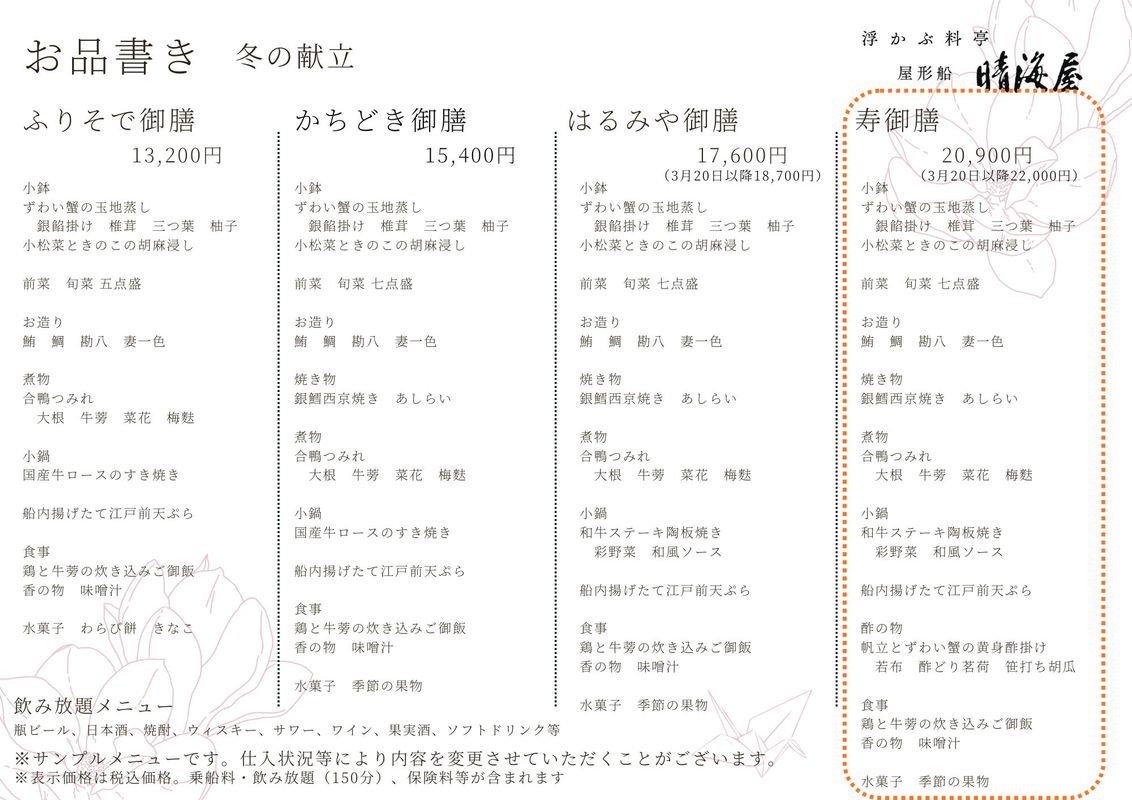 お品書き　冬の献立
浮かぶ料亭
屋形船　晴海屋
ふりそで御膳
13,200円
小鉢
ずわい蟹の玉地蒸し
　銀餡掛け　椎茸　三つ葉　柚子
小松菜ときのこの胡麻浸し
前菜　旬菜 五点盛
お造り
鮪　鯛　勘八　妻一色
煮物
合鴨つみれ
　大根　牛蒡　菜花　梅麩
小鍋
国産牛ロースのすき焼き
船内揚げたて江戸前天ぷら
食事
鶏と牛蒡の炊き込みご御飯
香の物　味噌汁
水菓子　わらび餅　きなこ
かちどき御膳
15,400円
小鉢
ずわい蟹の玉地蒸し
　銀餡掛け　椎茸　三つ葉　柚子
小松菜ときのこの胡麻浸し
前菜　旬菜 七点盛
お造り
鮪　鯛　勘八　妻一色
焼き物
銀鱈西京焼き　あしらい
煮物
合鴨つみれ
　大根　牛蒡　菜花　梅麩
小鍋
国産牛ロースのすき焼き
船内揚げたて江戸前天ぷら
食事
鶏と牛蒡の炊き込みご御飯
香の物　味噌汁
水菓子　季節の果物
はるみや御膳
17,600円
（3月20日以降18,700円）
小鉢
ずわい蟹の玉地蒸し
　銀餡掛け　椎茸　三つ葉　柚子
小松菜ときのこの胡麻浸し
前菜　旬菜 七点盛
お造り
鮪　鯛　勘八　妻一色
焼き物
銀鱈西京焼き　あしらい
煮物
合鴨つみれ
　大根　牛蒡　菜花　梅麩
小鍋
和牛ステーキ陶板焼き
　彩野菜　和風ソース
船内揚げたて江戸前天ぷら
食事
鶏と牛蒡の炊き込みご御飯
香の物　味噌汁
水菓子　季節の果物
寿御膳
20,900円
（3月20日以降22,000円）
小鉢
ずわい蟹の玉地蒸し
　銀餡掛け　椎茸　三つ葉　柚子
小松菜ときのこの胡麻浸し
前菜　旬菜 七点盛
お造り
鮪　鯛　勘八　妻一色
焼き物
銀鱈西京焼き　あしらい
煮物
合鴨つみれ
　大根　牛蒡　菜花　梅麩
小鍋
和牛ステーキ陶板焼き
　彩野菜　和風ソース
船内揚げたて江戸前天ぷら
酢の物
帆立とずわい蟹の黄身酢掛け
　若布　酢どり茗荷　笹打ち胡瓜
食事
鶏と牛蒡の炊き込みご御飯
香の物　味噌汁
水菓子　季節の果物
飲み放題メニュー
瓶ビール、日本酒、焼酎、ウィスキー、サワー、ワイン、果実酒、ソフトドリンク等
※サンプルメニューです。仕入状況等により内容を変更させていただくことがございます。
※表示価格は税込価格。乗船料・飲み放題（150分）、保険料等が含まれます